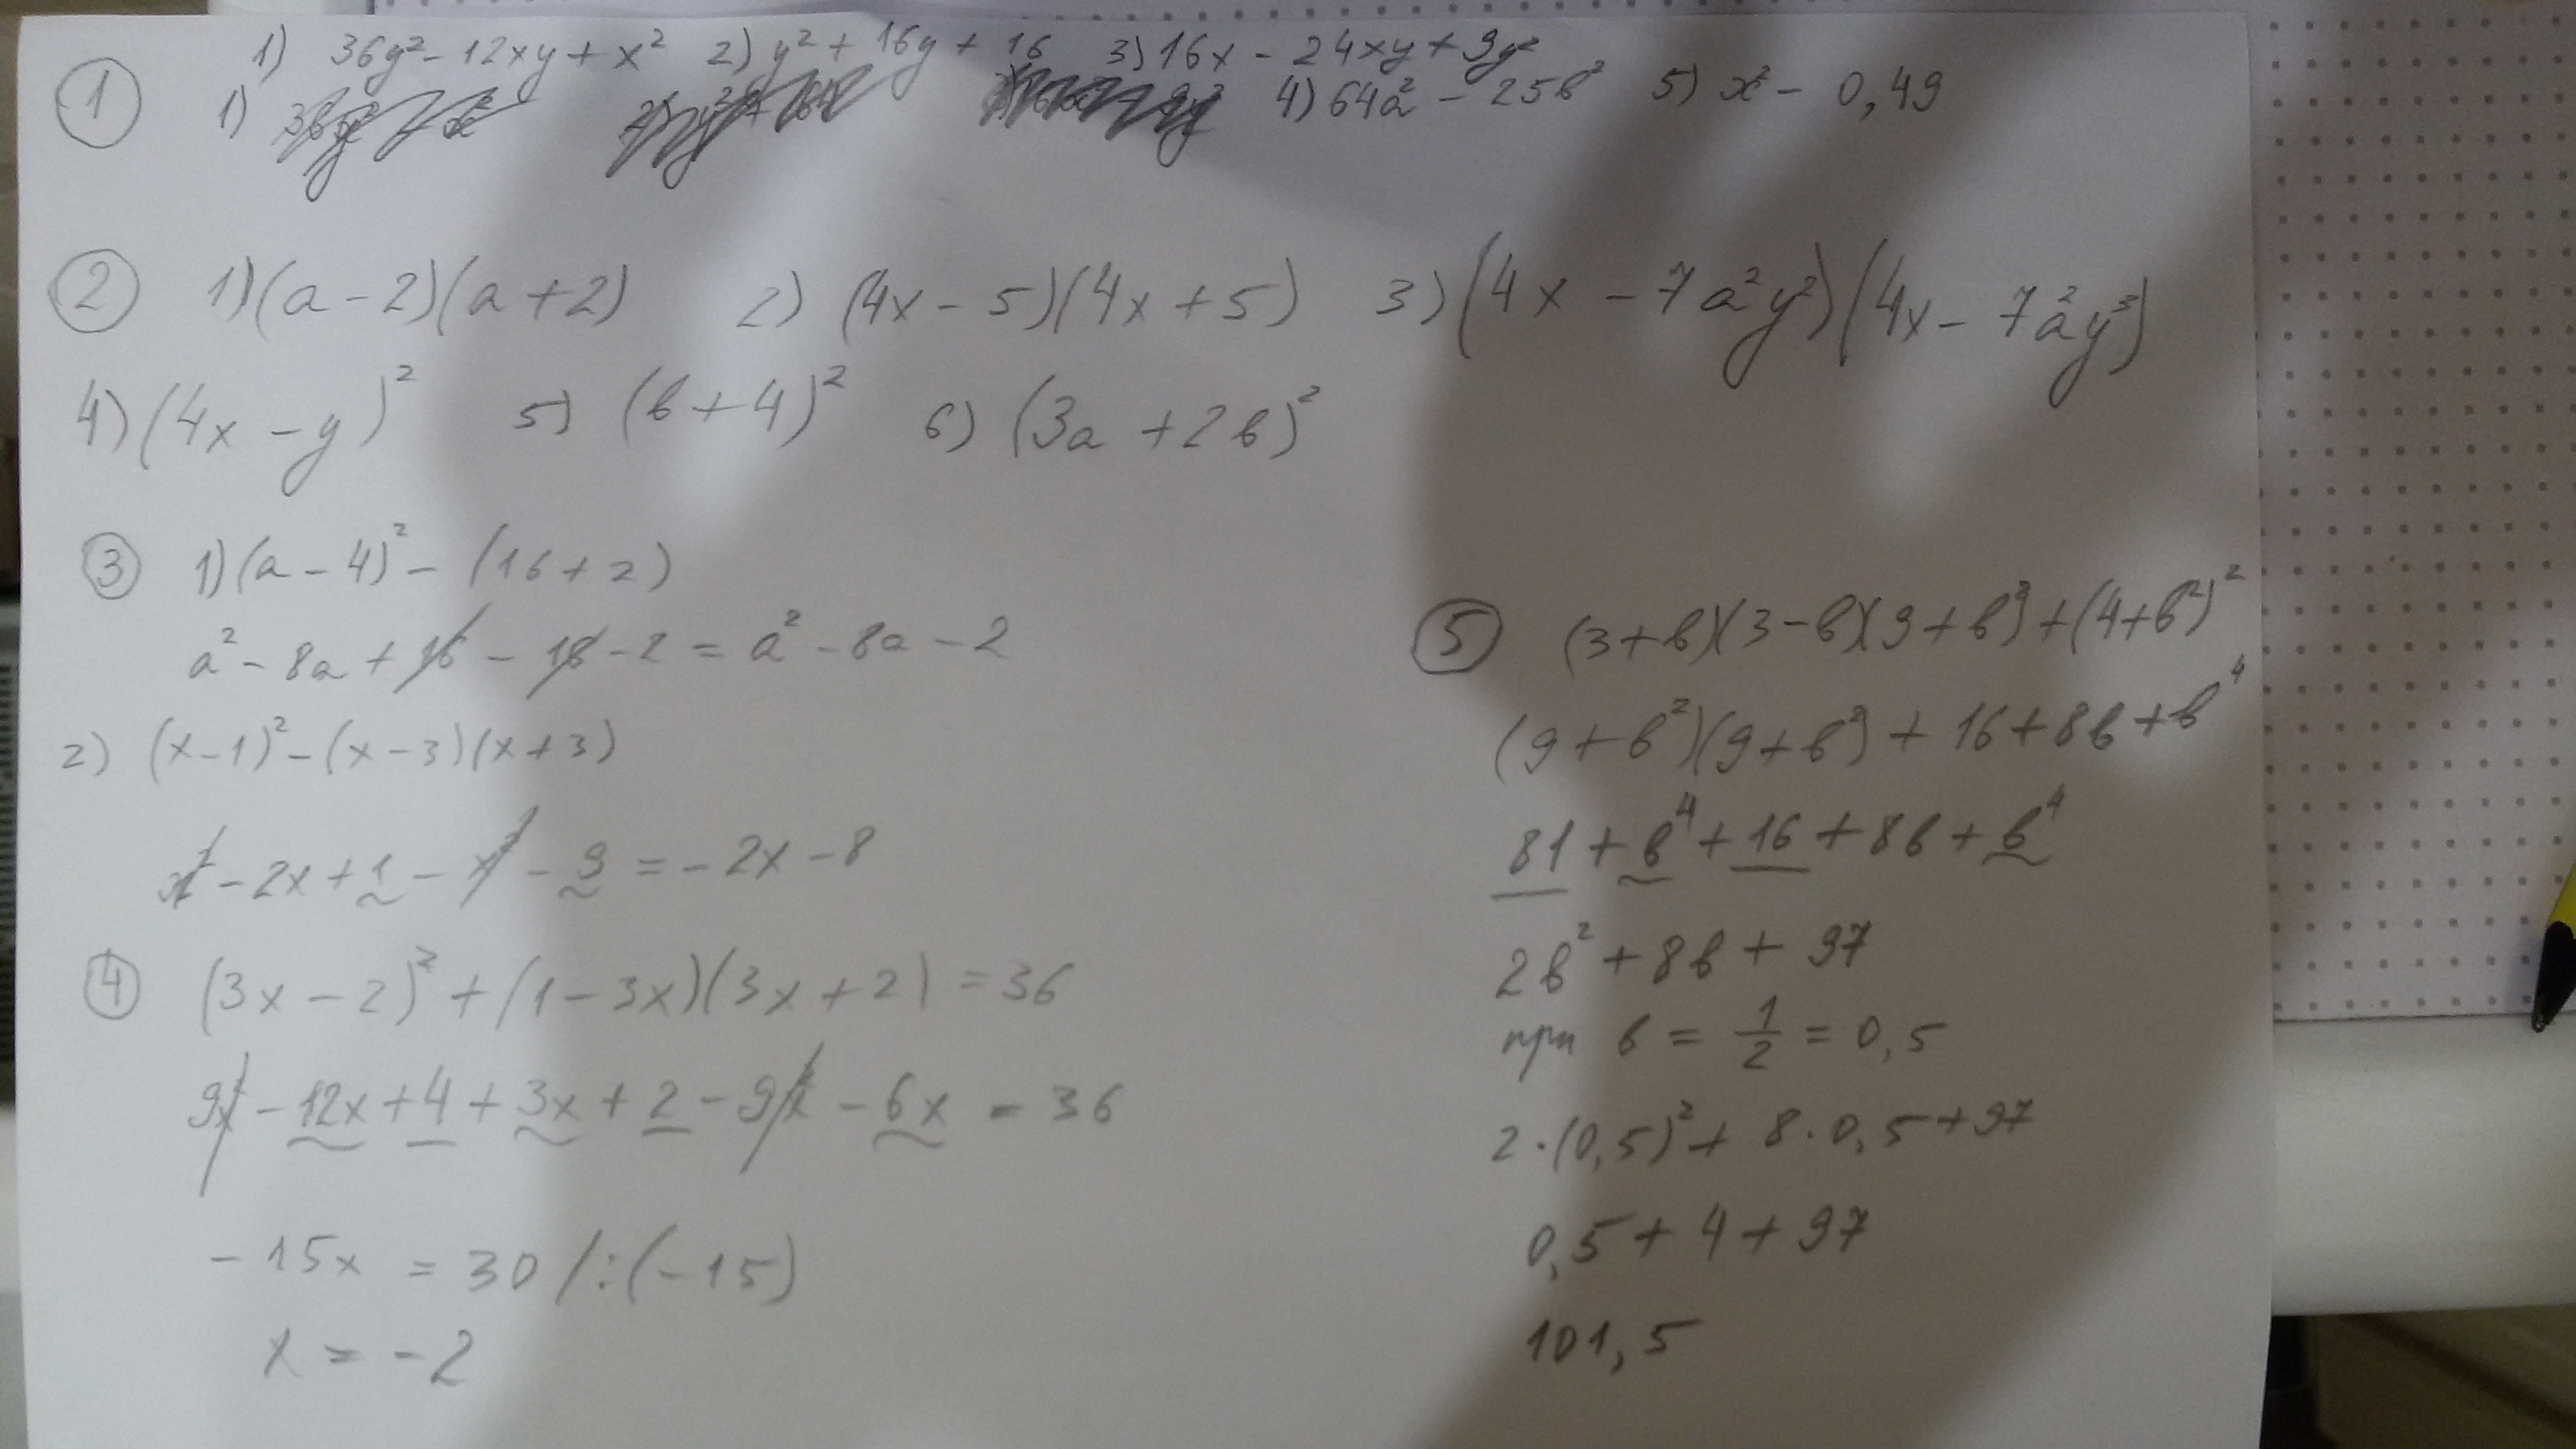 1) 36y² - 12xy + x² 2) y² + 16y + 16 3) 16x - 24xy + 9y²
① 1) 4) 64a² - 25b² 5) x² - 0,49
② 1) (a - 2)(a + 2) 2) (4x - 5)(4x + 5) 3) (4x - 7a²y²)(4x - 7a²y³)
4) (4x - y)² 5) (в + 4)² 6) (3a + 2в)²
③ 1) (a - 4)² - (16 + 2)
a² - 8a + 16 - 16 - 2 = a² - 8a - 2
2) (x - 1)² - (x - 3)(x + 3)
x² - 2x + 1 - x² - 9 = - 2x - 8
④ (3x - 2)² + (1 - 3x)(3x + 2) = 36
9x² - 12x + 4 + 3x + 2 - 9x² - 6x = 36
- 15x = 30 /:(-15)
x = - 2
⑤ (3 + в)(3 - в)(9 + в²) + (4 + в²)²
(9 + в²)(9 + в²) + 16 + 8в + в⁴
81 + в⁴ + 16 + 8в + в⁴
2в² + 8в + 97
при в = 1/2 = 0,5
2 · (0,5)² + 8 · 0,5 + 97
0,5 + 4 + 97
101,5